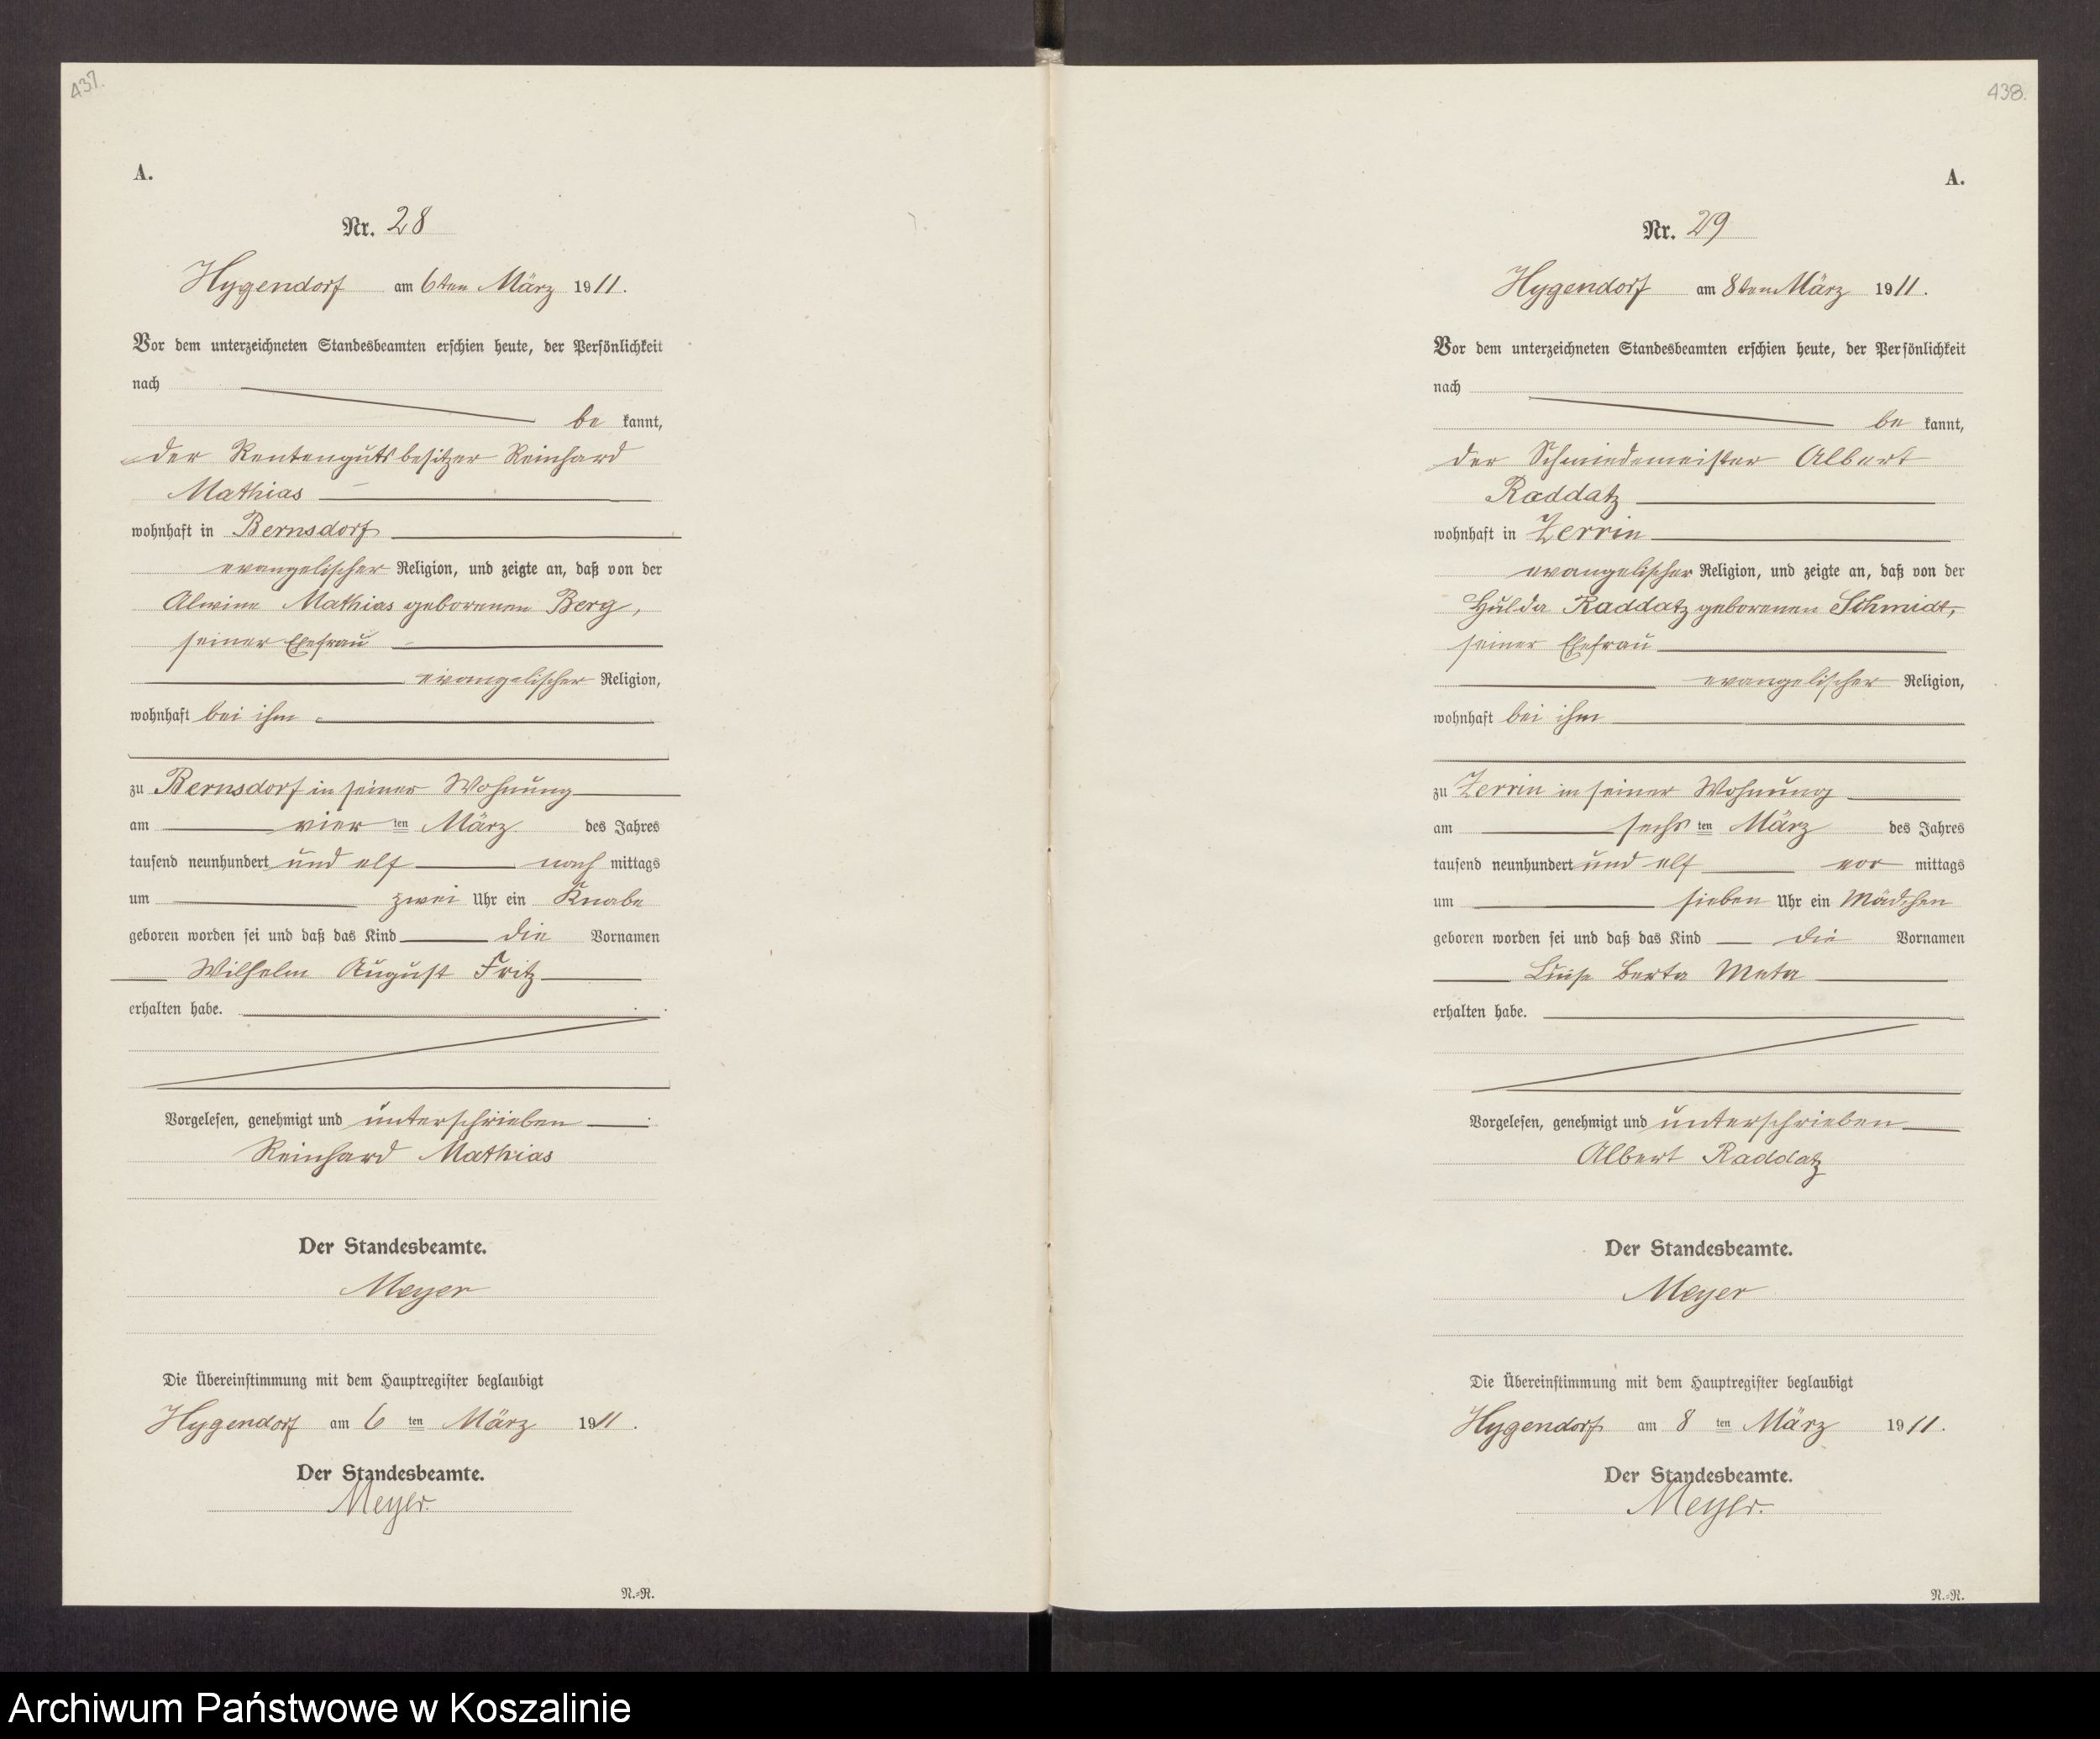 437.
A.
Nr. 28
Hygendorf am 6ten März 1911.
Vor dem unterzeichneten Standesbeamten erschien heute, der Persönlichkeit
nach
be kannt,
der Rentengutsbesitzer Reinhard
Mathias
wohnhaft in Bernsdorf
evangelischer Religion, und zeigte an, daß von der
Alwine Mathias geborenen Berg,
seiner Ehefrau
evangelischer Religion,
wohnhaft bei ihm
zu Bernsdorf in seiner Wohnung
am vier ten März des Jahres
tausend neunhundert und elf nach mittags
um zwei Uhr ein Knabe
geboren worden sei und daß das Kind die Vornamen
Wilhelm August Fritz
erhalten habe.
Vorgelesen, genehmigt und unterschrieben
Reinhard Mathias
Der Standesbeamte.
Meyer
Die Übereinstimmung mit dem Hauptregister beglaubigt
Hygendorf am 6 ten März 1911.
Der Standesbeamte.
Meyer.
N.=R.
438.
A.
Nr. 29
Hygendorf am 8ten März 1911.
Vor dem unterzeichneten Standesbeamten erschien heute, der Persönlichkeit
nach
be kannt,
der Schmiedemeister Albert
Raddatz
wohnhaft in Zerrin
evangelischer Religion, und zeigte an, daß von der
Hulda Raddatz geborenen Schmidt,
seiner Ehefrau
evangelischer Religion,
wohnhaft bei ihm
zu Zerrin in seiner Wohnung
am sechs ten März des Jahres
tausend neunhundert und elf vor mittags
um sieben Uhr ein Mädchen
geboren worden sei und daß das Kind die Vornamen
Luise Berta Meta
erhalten habe.
Vorgelesen, genehmigt und unterschrieben
Albert Raddatz
Der Standesbeamte.
Meyer
Die Übereinstimmung mit dem Hauptregister beglaubigt
Hygendorf am 8 ten März 1911.
Der Standesbeamte.
Meyer.
N.=R.
Archiwum Państwowe w Koszalinie